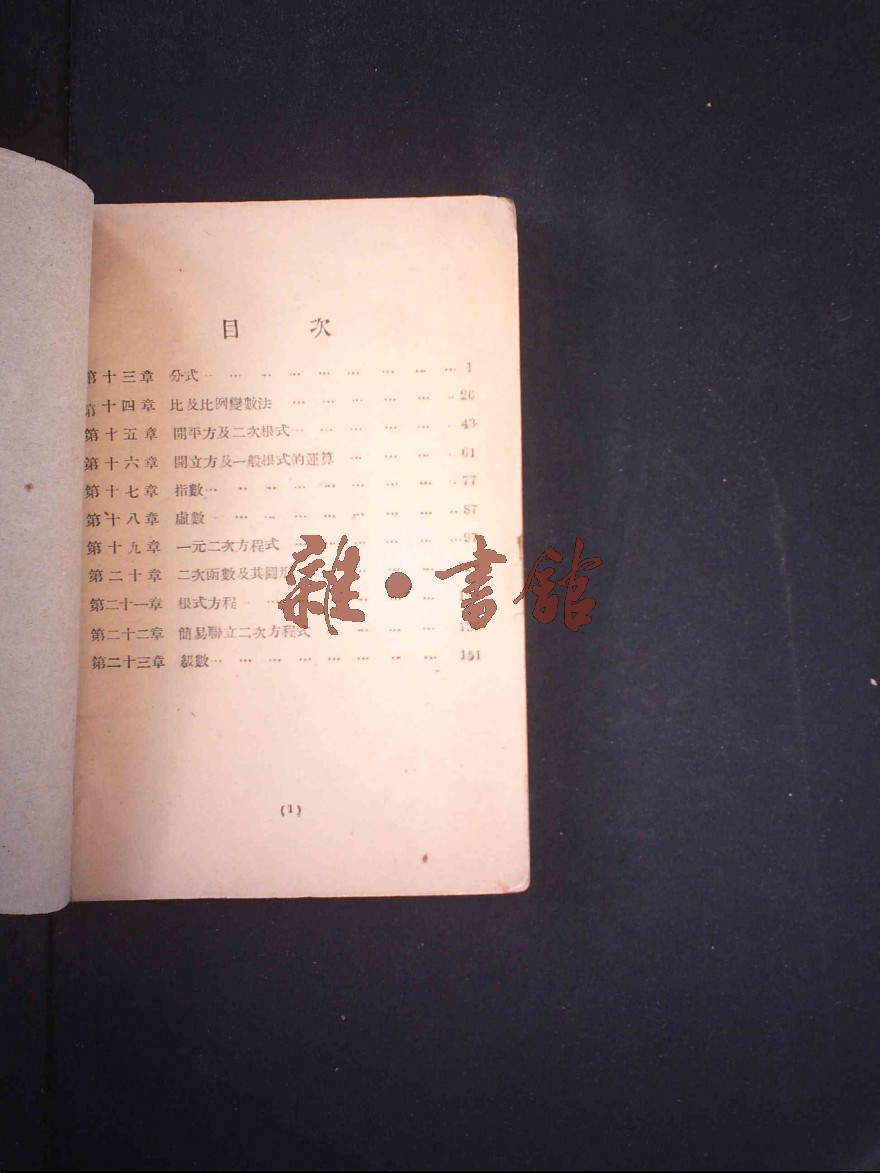 目 次
第十三章 分式 … … … … … … … … 1
第十四章 比及比例變數法 … … … … … … 26
第十五章 開平方及二次根式 … … … … … … 43
第十六章 開立方及一般根式的運算 … … … … 61
第十七章 指數 … … … … … … … … 77
第十八章 虛數 … … … … … … … … 87
第十九章 一元二次方程式 … … … … … … 97
第二十章 二次函數及其圖形
第二十一章 根式方程
第二十二章 簡易聯立二次方程式 … … … …
第二十三章 級數 … … … … … … … … 151
雜·書館
(1)